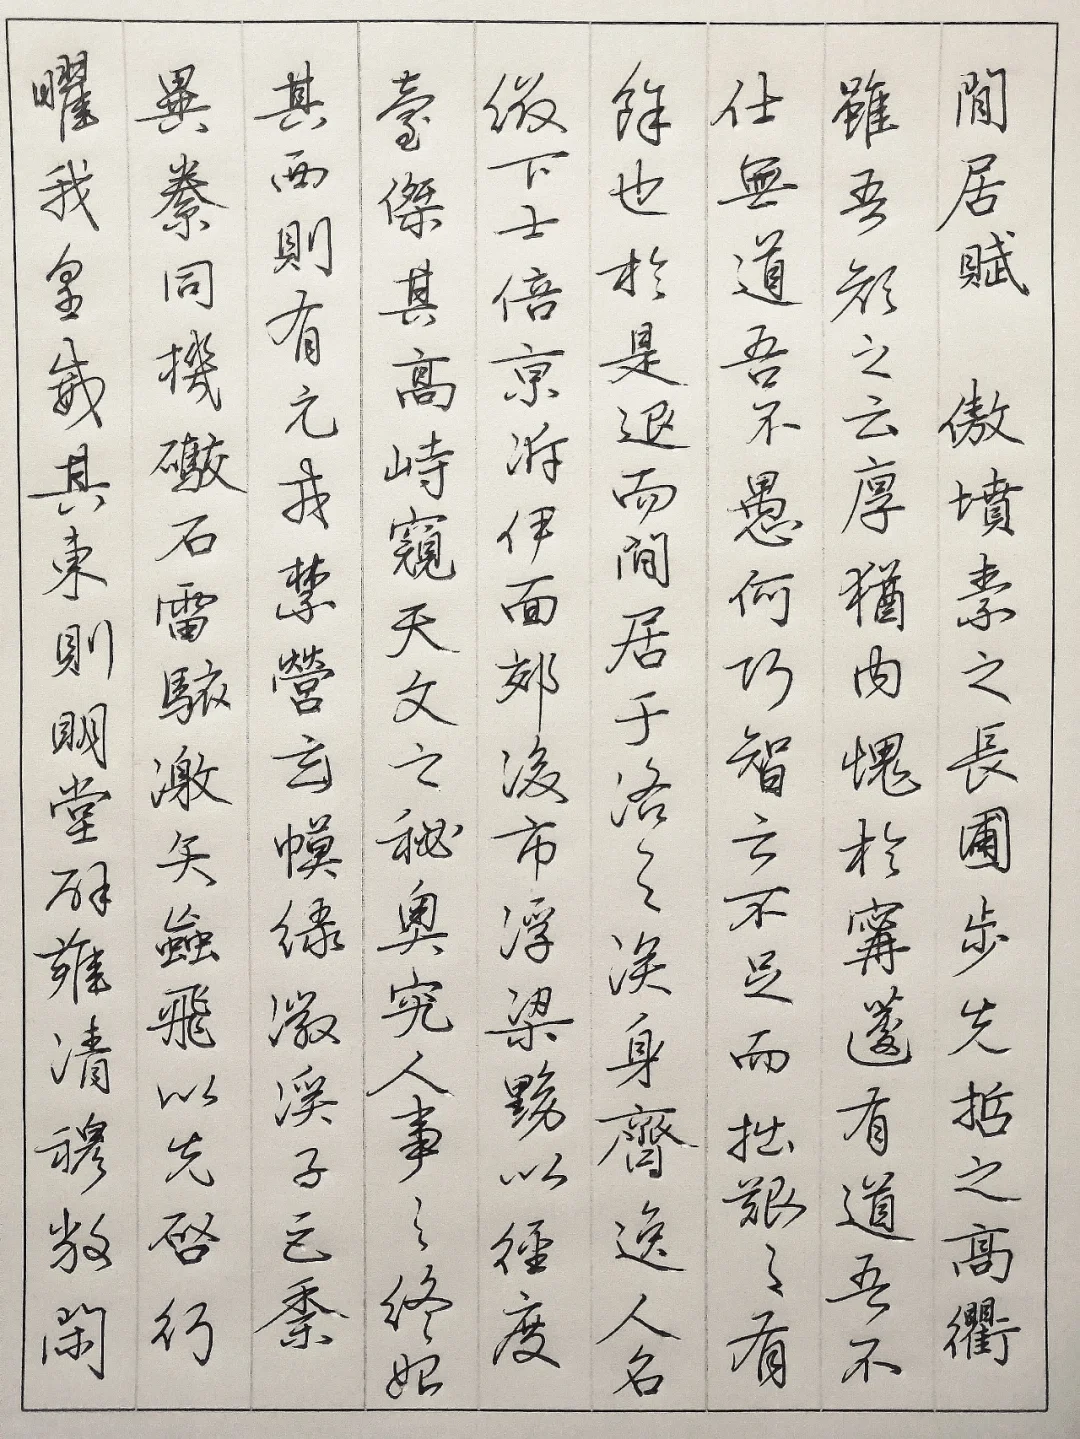 閒居賦 傲墳素之長圃步先哲之高衢
雖吾顏之云厚猶內愧於甯蘧有道吾不
仕無道吾不愚何巧智之不足而拙艱之有
餘也於是退而閒居于洛之涘身齊逸人名
綴下士倍京泝伊面郊後市浮梁黝以徑度
臺傑其高峙窺天文之秘奧究人事之終始
其西則有元戎禁營玄幙綠徽溪子巨黍
異絭同機礮石雷駭激矢䖟飛以先啓行
曜我皇威其東則明堂辟雍清穆敞閑